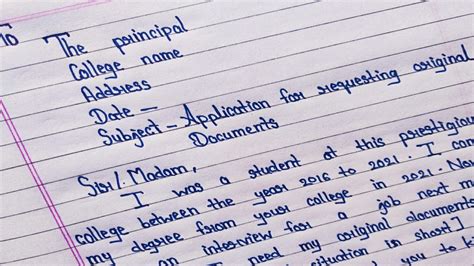 To
The principal
College name
Address
Date -
Subject - Application for requesting original
Documents
Sir/Madam,
I was a student at this prestigiou
college between the year 2016 to 2021. I can
my degree from your college in 2021. No
an interview for a job next m
I need my original documents
situation in short]
you to